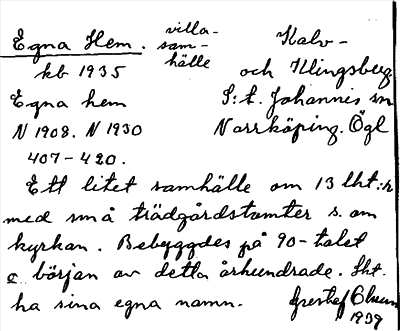 Egna Hem. villa-
sam-
hälle
kb 1935
Egna hem
N 1908. N 1930
407-420.
Kalv-
och Klingsberg
S:t. Johannis sn
Norrköping. Ögl
Ett litet samhälle om 13 lht:r
med små trädgårdstomter s. om
kyrkan. Bebyggdes på 90-talet
o. början av detta århundrade. Lht.
ha sina egna namn. Gustaf
1939